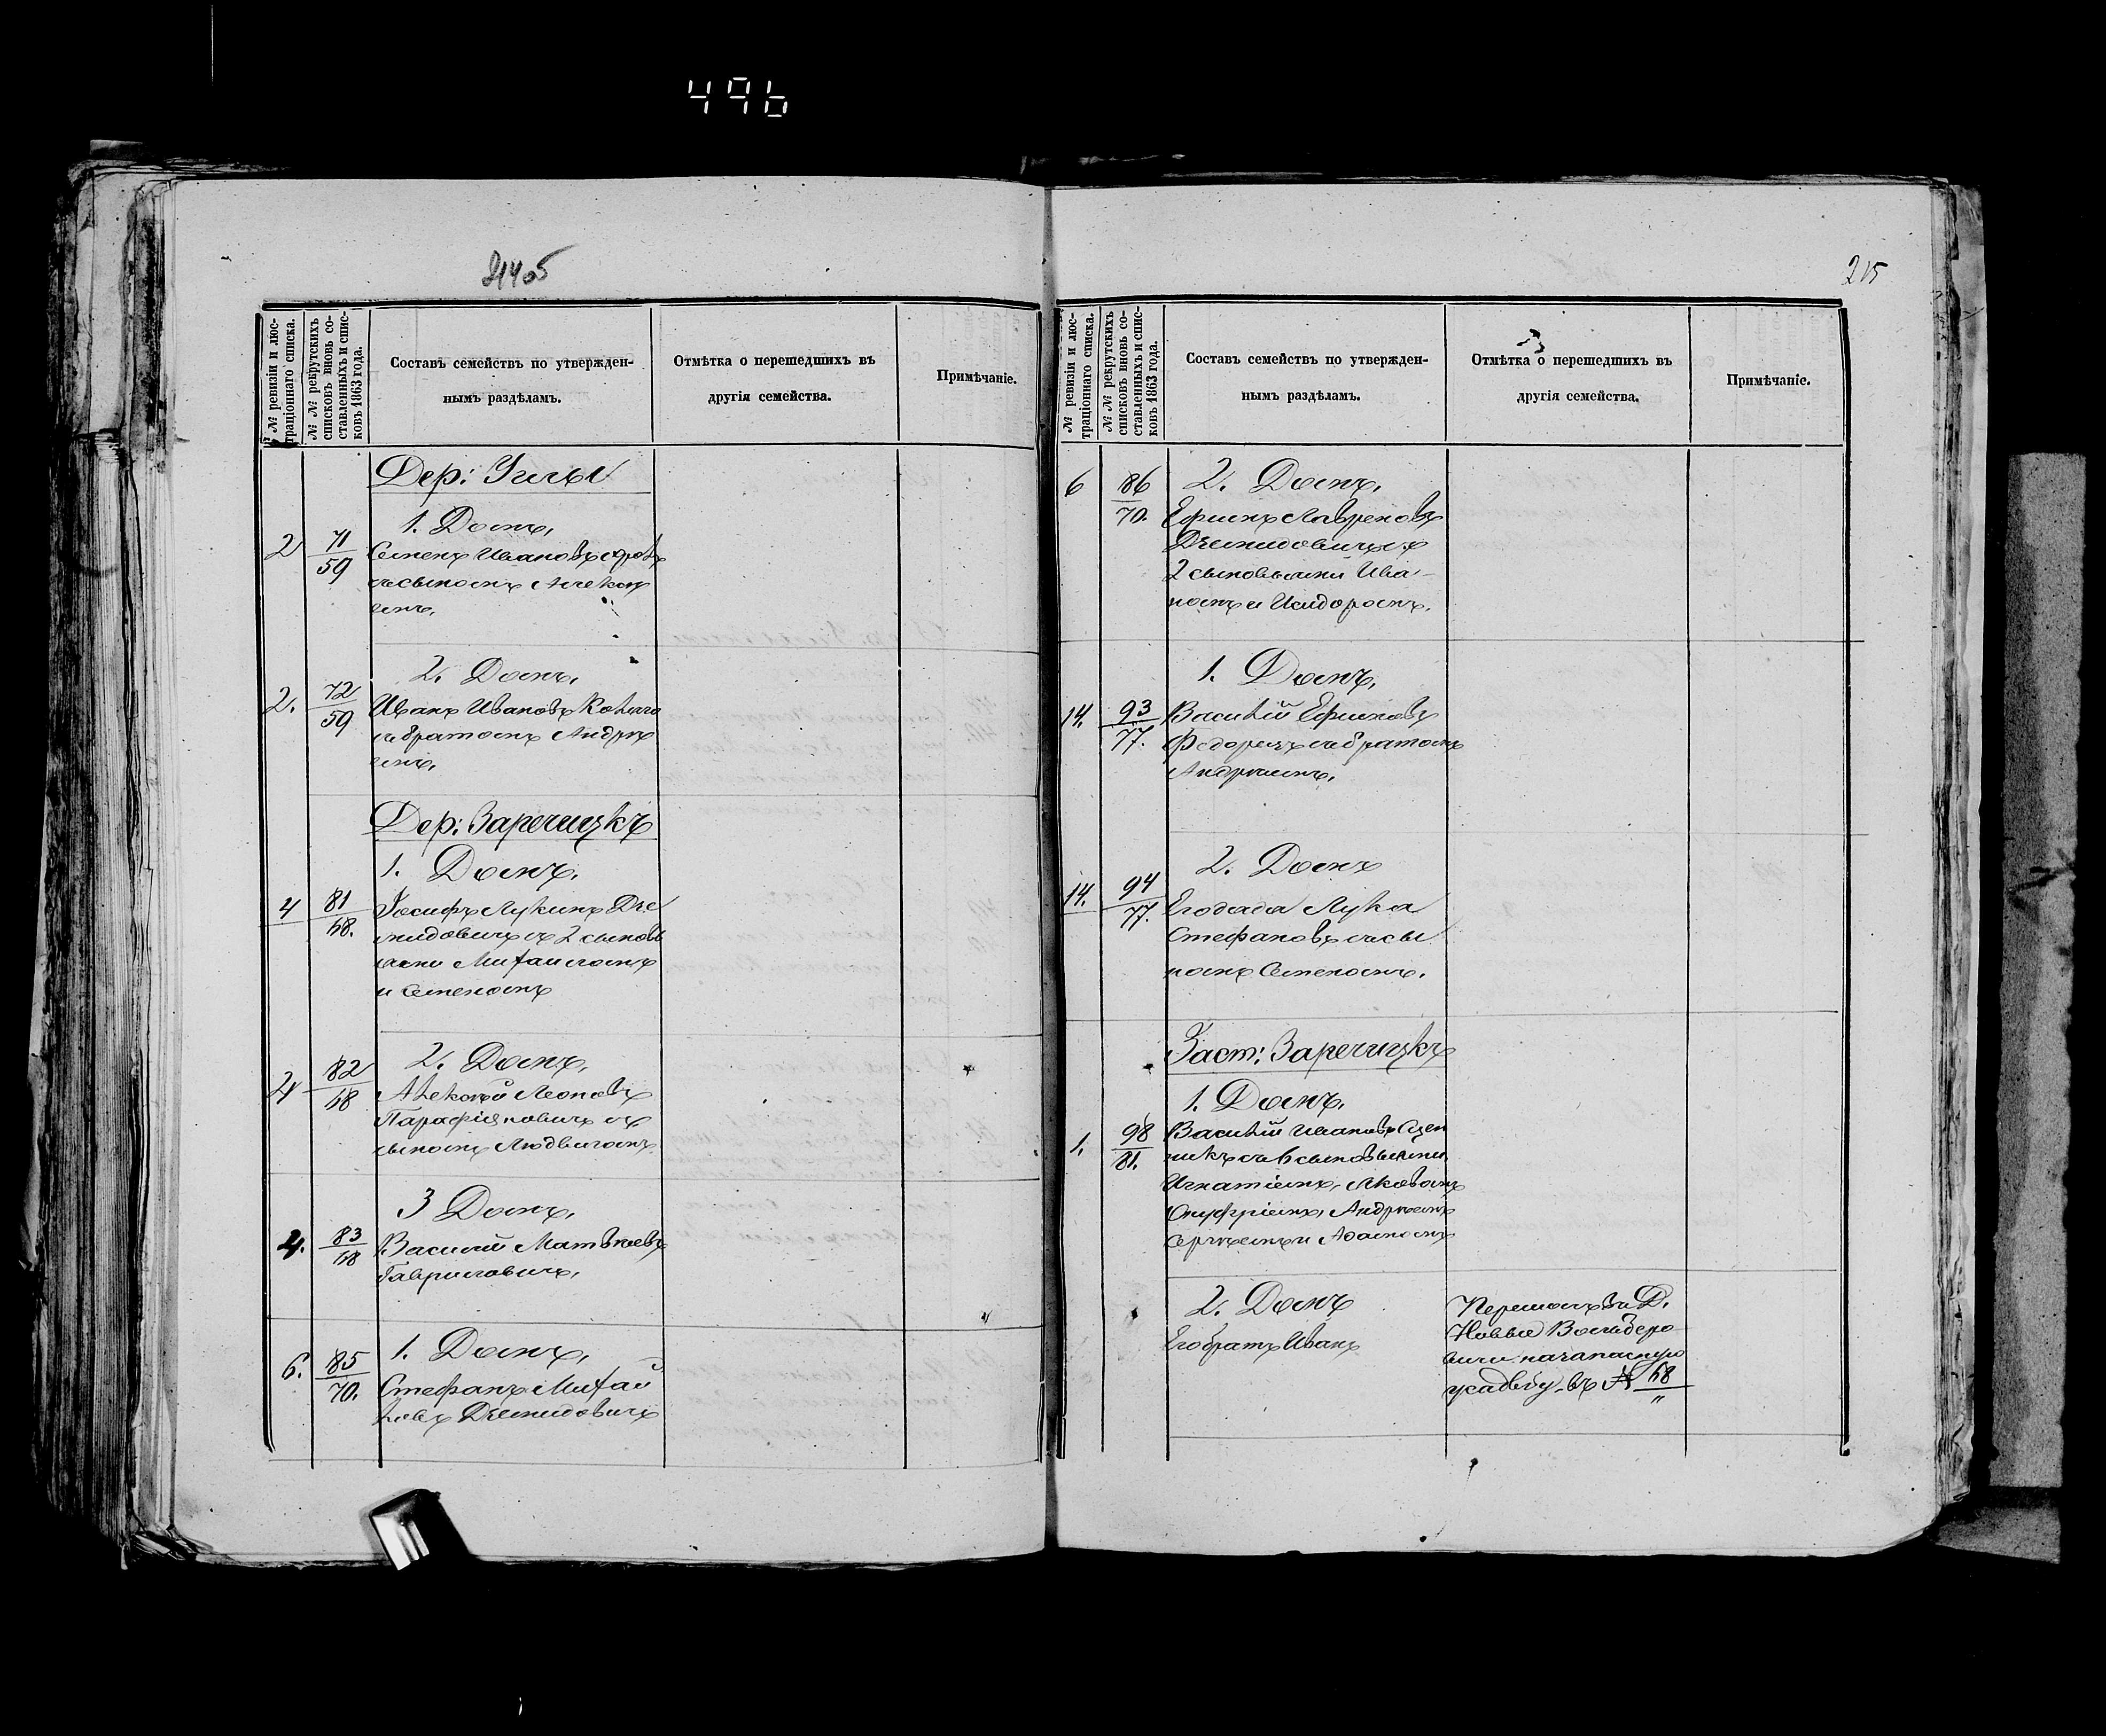 496
215
№ ревизіи и люс-
траціоннаго списка.
№ № рекрутскихъ
списковъ вновь со-
ставленныхъ и спис-
ковъ 1863 года.
Составъ семействъ по утвержден-
нымъ раздѣламъ.
Отмѣтка о перешедшихъ въ
другія семейства.
Примѣчаніе.
Дер:
1. Домъ,
2 71/59 Семенъ Ивановъ
съ сыномъ Алексѣ
емъ.
2. Домъ,
2. 72/59 Иванъ Ивановъ
съ братомъ Андре
емъ,
Дер: Заречицкъ
1. Домъ.
4 81/68. Іосифъ Лукинъ Дзе
мидовичъ съ 2 сыновь
ями Михаиломъ
и Семеномъ
2. Домъ,
4 82/68 Алексѣй Леоновъ
Парафіяновичъ съ
сыномъ Людвигомъ.
3 Домъ,
4. 83/68 Василій Матвѣевъ
Гавриловичъ,
1. Домъ,
6. 85/70. Стефанъ Михай
ловъ Дземидовичъ
№ ревизіи и люс-
траціоннаго списка.
№ № рекрутскихъ
списковъ вновь со-
ставленныхъ и спис-
ковъ 1863 года.
Составъ семействъ по утвержден-
нымъ раздѣламъ.
Отмѣтка о перешедшихъ въ
другія семейства.
Примѣчаніе.
2. Домъ,
6 86/70. Ефимъ Лавреновъ
Дземидовичъ съ
2 сыновьями Ива-
номъ и Исидоромъ.
1. Домъ,
14. 93/77. Василій Ефимовъ
Федорецъ съ братомъ
Андреемъ,
2. Домъ
14. 94/77. Его дядя Лука
Стефановъ съ сы
номъ Семеномъ.
Заст: Заречицкъ
1. Домъ,
1. 98/81. Василій Ивановъ
съ 6 сыновьями
Игнатіемъ, Яковомъ
Онуфріемъ, Андреемъ
Сергѣемъ и Адамомъ
2. Домъ
Его братъ Иванъ
Перешелъ въ Д.
Новые
вичи на запасную
усадьбу въ № 68/"